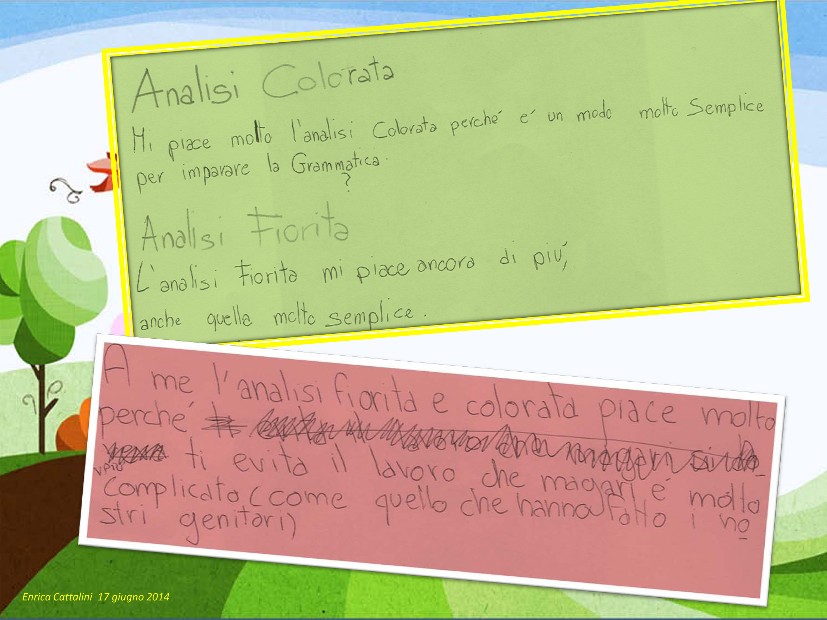 Analisi Colorata
Mi piace molto l'analisi Colorata perché é un modo molto Semplice
per imparare la Grammatica.
?
Analisi Fiorita
L'analisi Fiorita mi piace ancora di piú,
anche quella molto semplice.
A me l'analisi fiorita e colorata piace molto
perché
ti evita il lavoro che magari é molto
complicato (come quello che hanno fatto i no
stri genitori)
Enrica Cattalini 17 giugno 2014